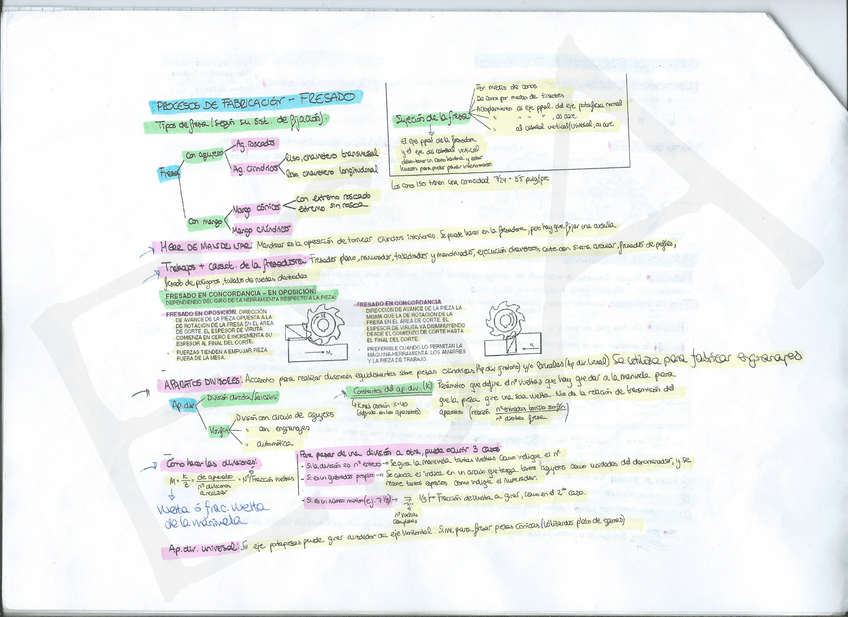 PROCESOS DE FABRICACIÓN - FRESADO
Tipos de fresa (según su sist. de fijación):
Fresa
Con agujero
Ag. roscados
Ag. cilíndricos
Liso, chavetero transversal
Liso, chavetero longitudinal
Con mango
Mango cónicos
Con extremo roscado
extremo sin rosca
Mango cilíndricos
Sujeción de la fresa
Por medio de conos
De conos por medio de tirantes
Acoplamiento al eje ppal. del eje portafresa normal
" " " " , al aire
" al cabezal vertical/universal, al aire
El eje ppal de la fresadora
y el eje del cabezal vertical
Los conos ISO tienen una conicidad 7/24 = 3'5 pulg/pie
HERR. DE MANDRINAR: Mandrinar es la operación de tornear cilindros interiores. Se puede hacer en la fresadora, pero hay que fijar una cuchilla
Trabajos + caract. de la fresadora: Fresado plano, ranurador, taladrados y mandrinados, ejecución chaveteros, corte con sierra circular, fresados de perfiles,
fresado de polígonos, tallado de ruedas dentadas
FRESADO EN CONCORDANCIA – EN OPOSICIÓN:
DEPENDIENDO DEL GIRO DE LA HERRAMIENTA RESPECTO A LA PIEZA:
FRESADO EN OPOSICIÓN. DIRECCIÓN
DE AVANCE DE LA PIEZA OPUESTA A LA
DE ROTACIÓN DE LA FRESA EN EL ÁREA
DE CORTE. EL ESPESOR DE VIRUTA
COMIENZA EN CERO E INCREMENTA SU
ESPESOR AL FINAL DEL CORTE.
- FUERZAS TIENDEN A EMPUJAR PIEZA
FUERA DE LA MESA.
FRESADO EN CONCORDANCIA
DIRECCIÓN DE AVANCE DE LA PIEZA LA
MISMA QUE LA DE ROTACIÓN DE LA
FRESA EN EL ÁREA DE CORTE. EL
ESPESOR DE VIRUTA VA DISMINUYENDO
DESDE EL COMIENZO DE CORTE HASTA
EL FINAL DEL CORTE.
PREFERIBLE CUANDO LO PERMITAN LA
MÁQUINA-HERRAMIENTA, LOS AMARRES
Y LA PIEZA DE TRABAJO.
APARATOS DIVISORES: Accesorio para realizar divisiones equidistantes sobre piezas cilíndricas (Ap div. giratorio) y/o lineales (Ap div. lineal) Se utiliza para fabricar engranajes
Ap. div.
División directa/sencillos
División con círculo de agujeros
" con engranajes
" automática
Constantes del ap. div. (K)
Parámetro que define el nº vueltas que hay que dar a la manivela para
que la pieza gire una sola vuelta. Nos da la relación de transmisión del
aparato (relación
Cómo hacer las divisiones:
M = K/Z =
nº divisiones
a realizar
vuelta ó frac. vuelta
de la manivela
Para pasar de una división a otra, puede ocurrir 3 casos
- Si la división es nº entero → Se gira la manivela tantas vueltas como indique el nº
- Si es un quebrado propio → Se coloca el índice en un círculo que tenga tantos agujeros como unidades del denominador, y se
recorre tantos agujeros como indique el numerador.
- Si es un número mixto (ej. 7 1/3) → 7 1/3 → Fracción de vuelta a girar, como en el 2º caso.
nº vueltas
completas
Ap. div. universal: Su eje portapiezas puede girar alrededor de eje horizontal. Sirve para fresar piezas cónicas (utilizando plato de garras)